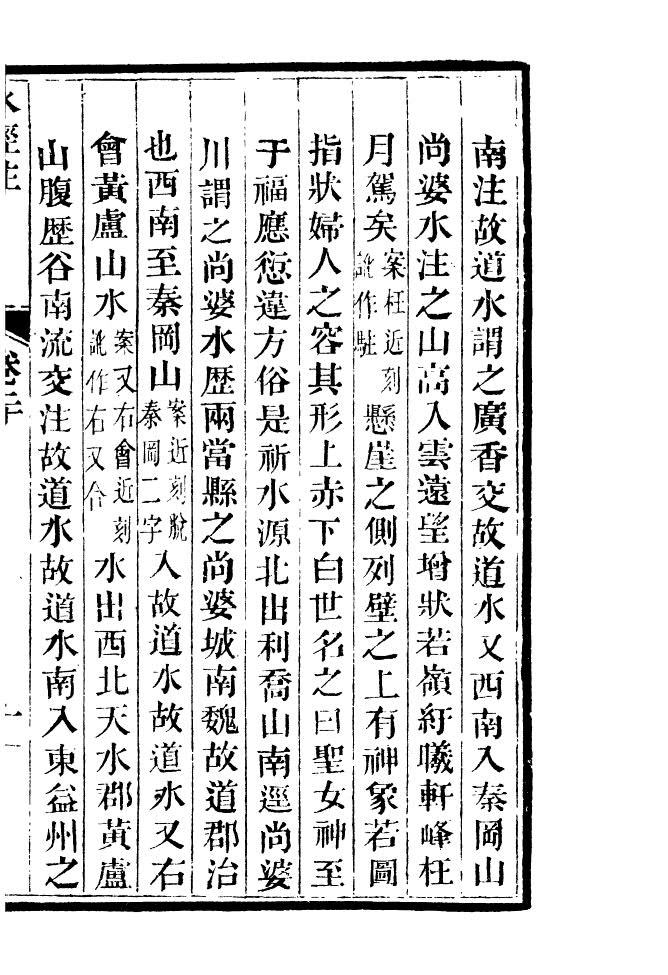 南注故道水謂之廣香交故道水又西南入秦岡山
尚婆水注之山高入雲遠望增狀若嶺紆曦軒峰枉
月駕矣案枉近刻訛作駐懸崖之側列壁之上有神象若圖
指狀婦人之容其形上赤下白世名之曰聖女神至
于福應愆違方俗是祈水源北出利喬山南逕尚婆
川謂之尚婆水歷兩當縣之尚婆城南魏故道郡治
也西南至秦岡山案近刻脫秦岡二字入故道水故道水又右
會黃盧山水案又右會近刻訛作右又合水出西北天水郡黃盧
山腹歷谷南流交注故道水故道水南入東益州之
水經注 卷二十